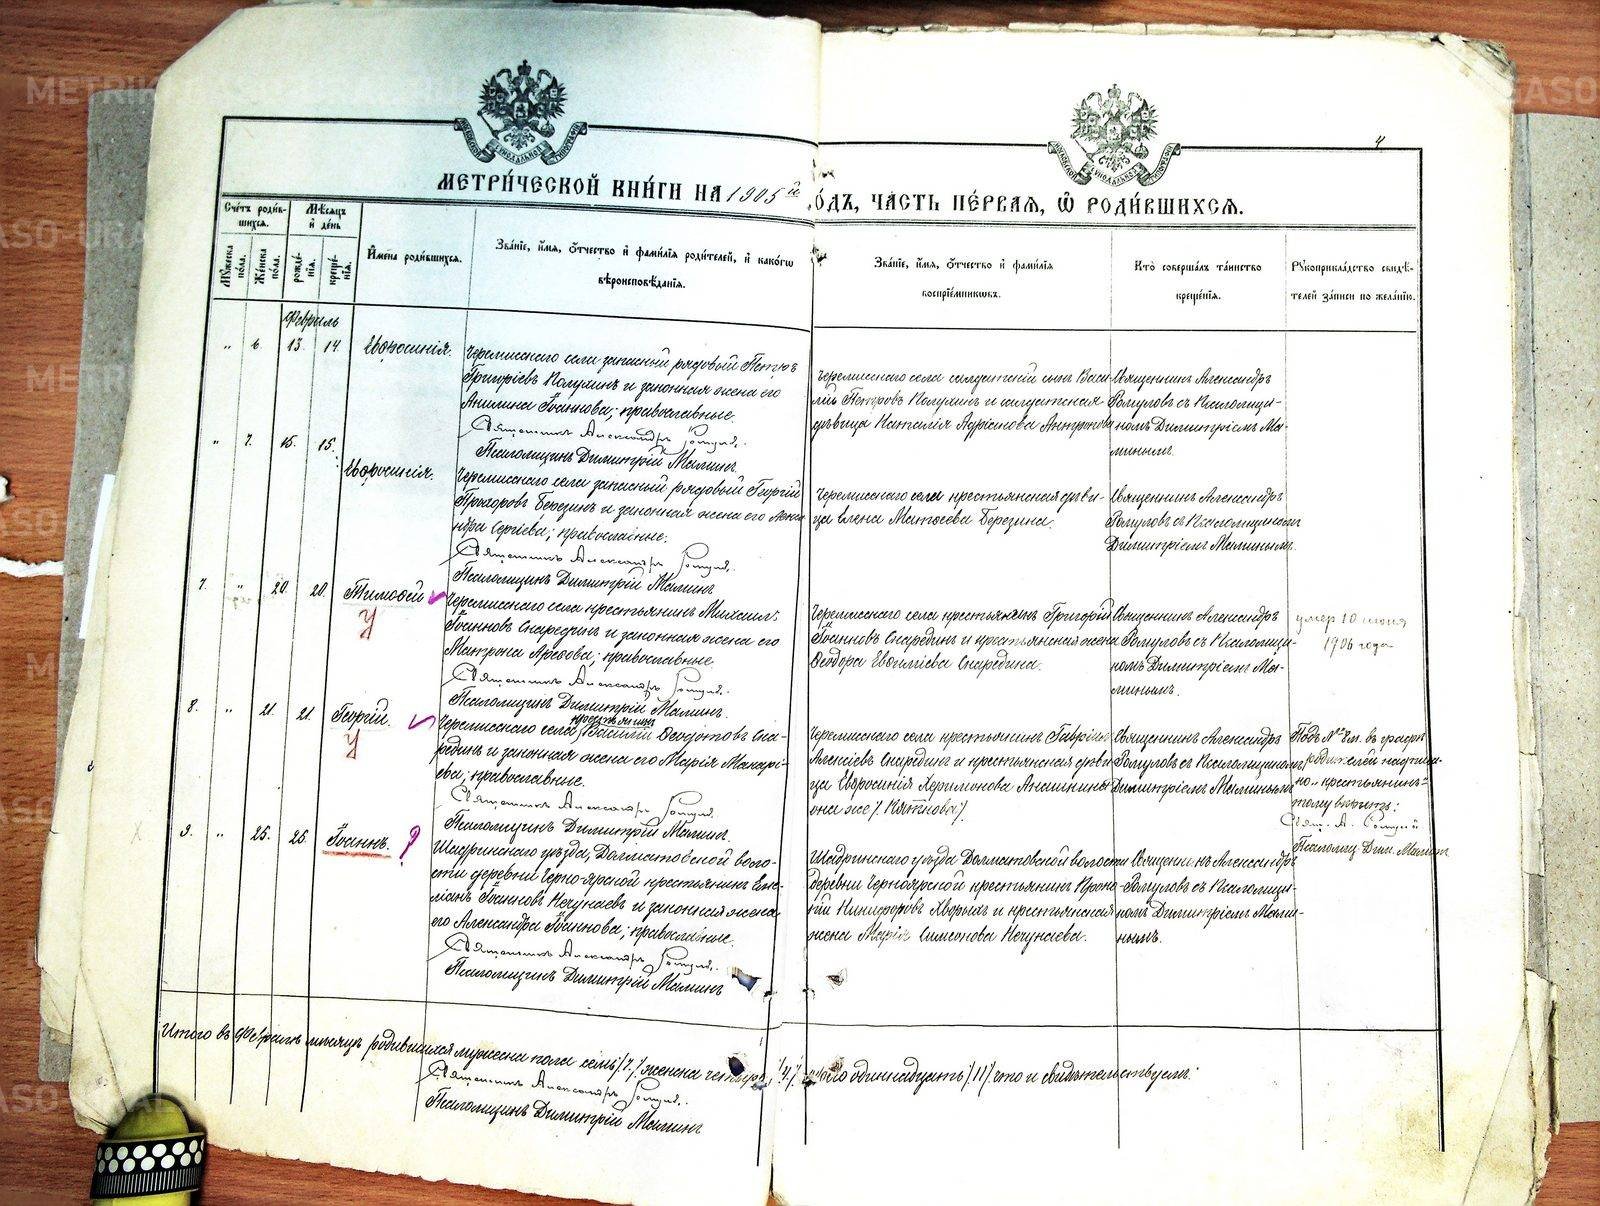 METRIKI.GASO-URAL.RU
МОСКОВСКОЙ СѴНОДАЛЬНОЙ ТИПОГРАФІИ
МОСКОВСКОЙ СѴНОДАЛЬНОЙ ТИПОГРАФІИ
4
МЕТРИ́ЧЕСКОЙ КНИ́ГИ НА 1905 й
О́ДЪ, ЧА́СТЬ ПЕ́РВАЯ, Ѡ҆ РОДИ́ВШИХСЯ.
Сче́тъ роди́в-
шихся.
Мѣ́сяцъ
и҆ де́нь
Мꙋ́жеска по́ла.
Же́нска по́ла.
рожде́-
нія.
креще́-
нія.
И҆мена̀ роди́вшихся.
Зва́ніе, и҆́мя, ѻ҆́тчество и҆ фами́лія роди́телей, и҆ како́гѡ
вѣроисповѣ́данія.
Зва́ніе, и҆́мя, ѻ҆́тчество и҆ фами́лія
воспріе́мникѡвъ.
Кто̀ соверша́лъ та́инство
креще́нія.
Рꙋкоприкла́дство свидѣ́-
телей за́писи по жела́нію.
Февраль
„ 6. 13. 14. Евфросинія.
Черемисскаго села запасный рядовый Петръ
Григоріевъ Полухинъ и законная жена его
Акилина Іоаннова; православные.
Священникъ Александръ Ромулов.
Псаломщикъ Димитрій Малинъ.
Черемисскаго села солдатскій сынъ Васи-
лій Петровъ Полухинъ и солдатская
дѣвица Наталія Адріанова Антропова
Священникъ Александръ
Ромуловъ съ Псаломщи-
комъ Димитріемъ Ма-
линымъ.
„ 7. 15. 15. Евфросинія.
Черемисскаго села запасный рядовый Георгій
Прохоровъ Березинъ и законная жена его Алекса-
ндра Сергіева; православные.
Священникъ Александръ Ромулов.
Псаломщикъ Димитрій Малинъ
Черемисскаго села крестьянская дѣви-
ца Елена Матѳеева Березина.
Священникъ Александръ
Ромуловъ съ Псаломщикомъ
Димитріемъ Малинымъ.
7. „ 20. 20. Тимофей
У
Черемисскаго села крестьянинъ Михаилъ
Іоанновъ Снарединъ и законная жена его
Матрона Арефова; православные
Священникъ Александръ Ромулов.
Псаломщикъ Димитрій Малинъ.
Черемисскаго села крестьянинъ Григорій
Іоанновъ Снарединъ и крестьянская жена
Ѳеодора Евфиміева Снаредина.
Священникъ Александръ
Ромуловъ съ Псаломщи-
комъ Димитріемъ Ма-
линымъ.
умер 10 июня
1906 года
8. „ 21. 21. Георгій.
У
крестьянинъ
Черемисскаго села Василій Ѳеодотовъ Сна-
рединъ и законная жена его Марія Макарі-
ева; православные.
Священникъ Александръ Ромулов.
Псаломщикъ Димитрій Малинъ.
Черемисскаго села крестьянинъ Гавріилъ
Алексіевъ Снарединъ и крестьянская дѣви-
ца Евфросинія Харитонова
она же /Пяткова/.
Священникъ Александръ
Ромуловъ съ Псаломщикомъ
Димитріемъ Малинымъ
Подъ № 8м. въ графѣ
родителей надписа-
но „крестьянинъ“
тому вѣрить:
Свящ. А. Ромулов
Псаломщ. Дим. Малинъ
9. „ 25. 25. Іоаннъ. ?
Шадринскаго уѣзда, Долматовской воло-
сти деревни Черно-ярской крестьянинъ Еме-
льянъ Іоанновъ Нечунаевъ и законная жена
его Александра Іоаннова; православные.
Священникъ Александръ Ромулов.
Псаломщикъ Димитрій Малинъ
Шадринскаго уѣзда Долматовской волости
деревни Черноярской крестьянинъ Проко-
пій Никифоровъ Хворыхъ и крестьянская
жена Марія Симеонова Нечунаева.
Священникъ Александръ
Ромуловъ съ Псаломщи-
комъ Димитріемъ Мали-
нымъ.
Итого въ Февралѣ мѣсяцѣ родившихся мужеска пола семь /7/ женска четыре /4/ всего одиннадцать /11/ что и свидѣтельствуемъ.
Священникъ Александръ Ромулов.
Псаломщикъ Димитрій Малинъ